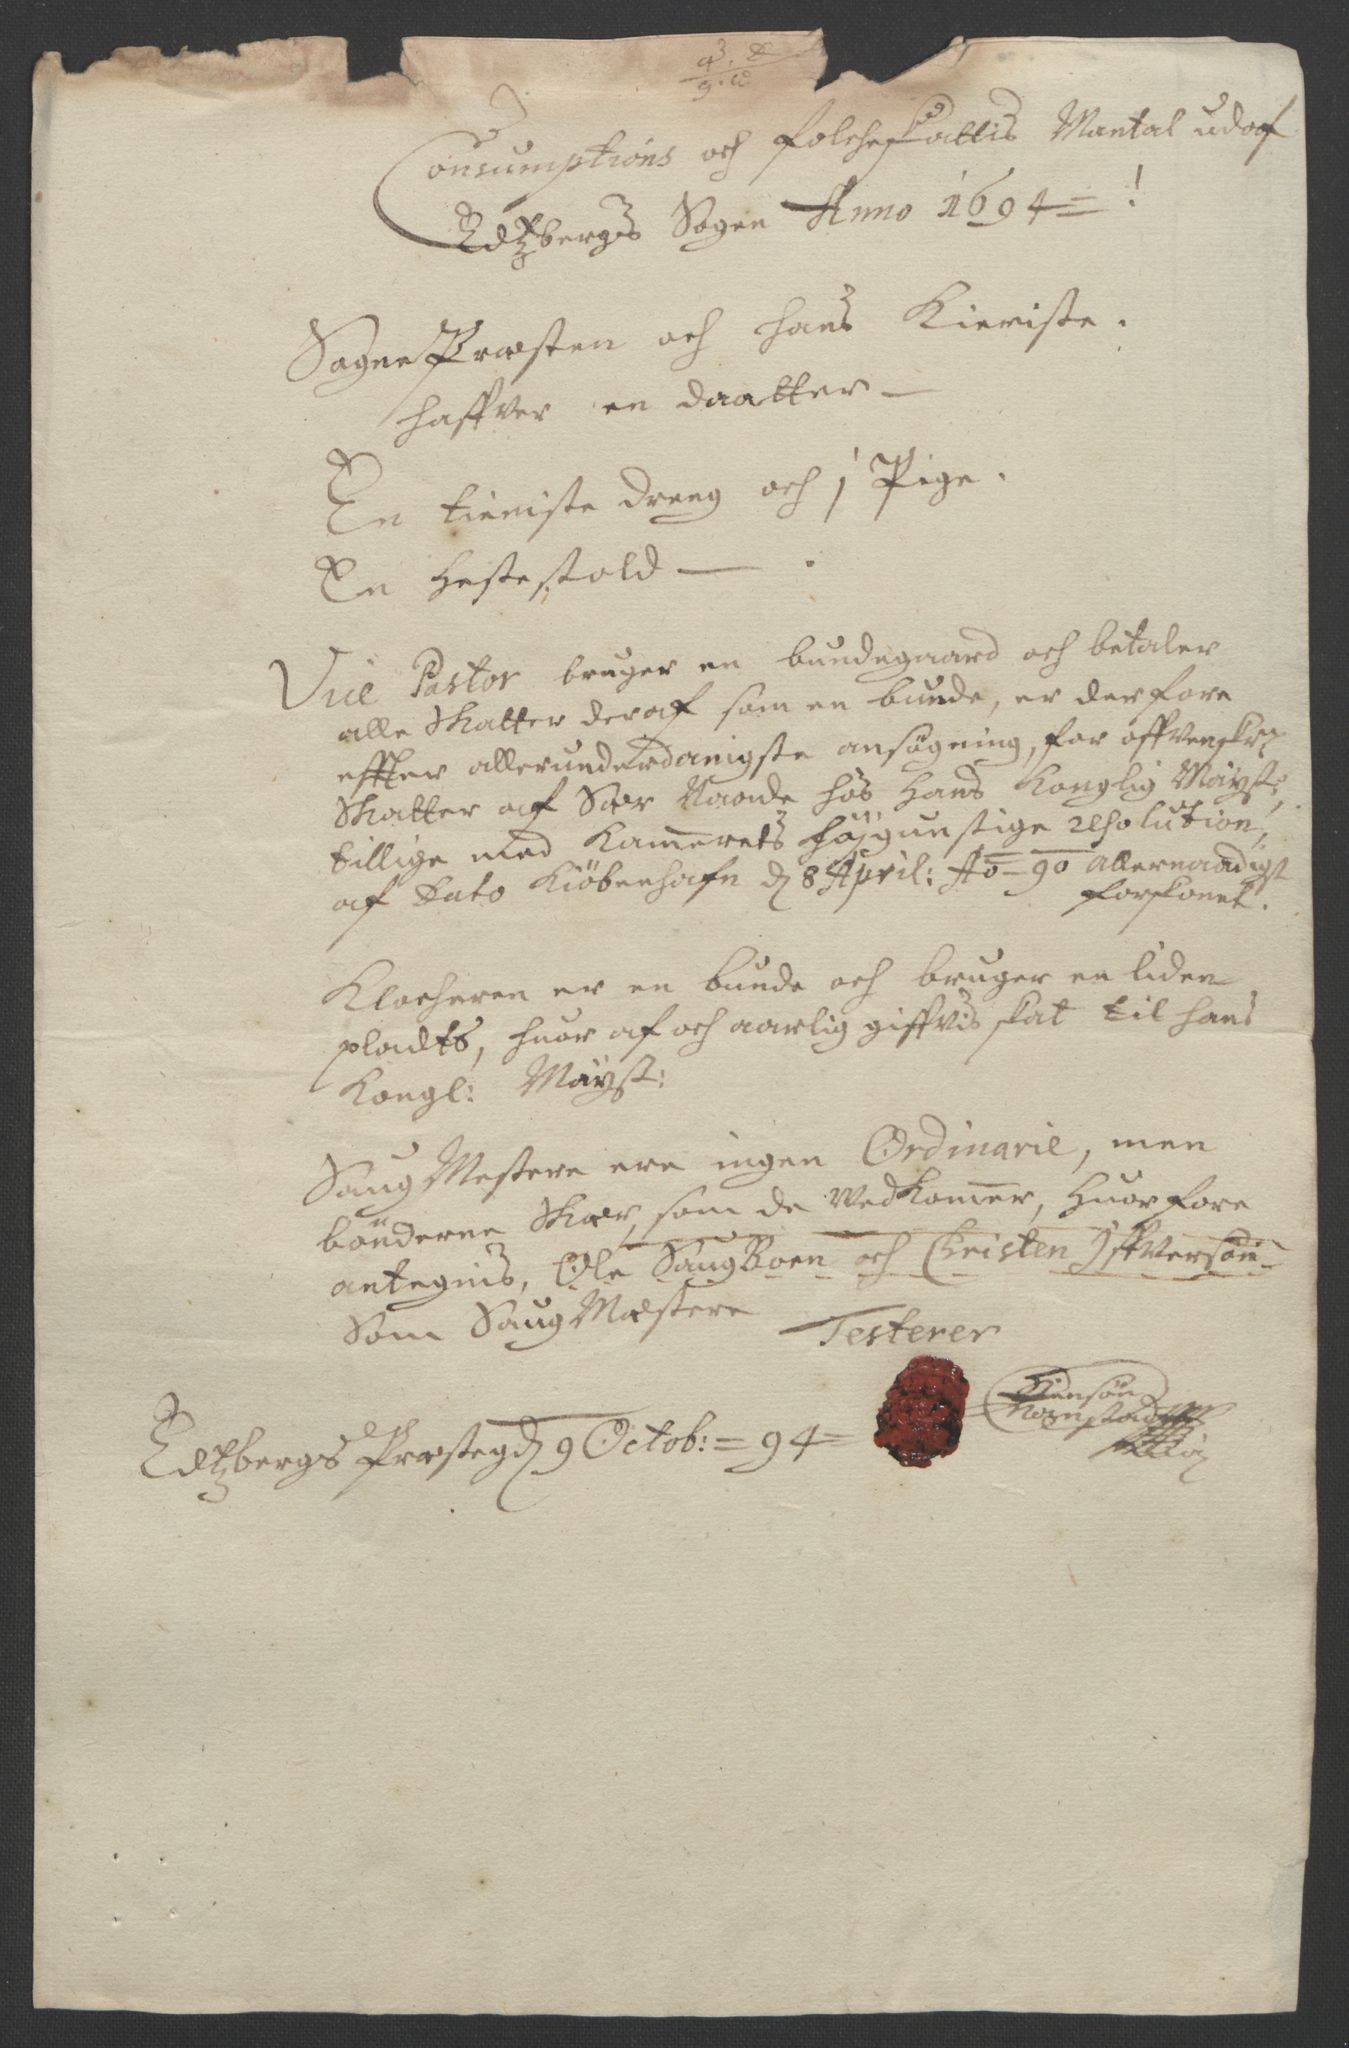 Consumptions och folcheskattis Mantal udaf
Edtzbergs Sogen Anno 1694 = !
Sogne Præsten och hans Kieriste.
haffver en daatter —
En tieniste dreng och 1 Pige.
En Hestestold — .
Vice Pastor bruger en bundegaard och betaler
alle skatter deraf som en bunde, er derfore
effter allerunderdanigste ansøgning, for offven skr:
skatter af Sær Naade hos Hans Konglig Mayst:,
tillige med Kamerets højgunstige resolution,
af Dato Kiøbenhafn d 8 April: Ao = 90 allernaadigst
forskonet.
Klocheren er en bunde och bruger en liden
pladts, huor af och aarlig giffvis skat til hans
Kongl: Mayst:
Saug Mestere ere ingen Ordinarie, men
bønderne skær, som de vedkomer, Huorfore
antegnis, Ole Saug Boen och Christen Iffversøn
Som Saug Mæstere
Testerer
Edtzbergs Præstegd 9 Octob: = 94 =